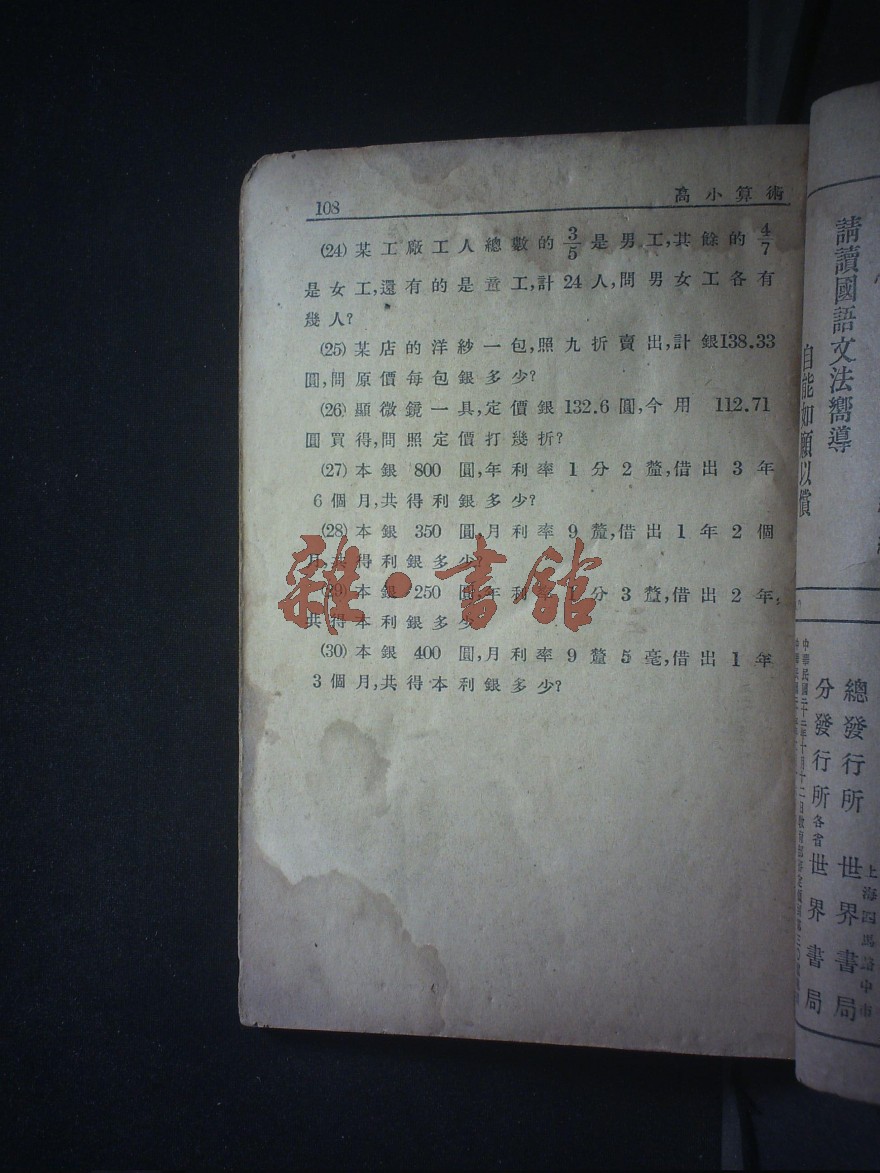 108
高小算術
(24) 某工廠工人總數的 3/5 是男工,其餘的 4/7
是女工,還有的是童工,計24人,問男女工各有
幾人?
(25) 某店的洋紗一包,照九折賣出,計銀138.33
圓,問原價每包銀多少?
(26) 顯微鏡一具,定價銀132.6圓,今用 112.71
圓買得,問照定價打幾折?
(27) 本銀 800 圓,年利率1分2釐,借出3年
6個月,共得利銀多少?
(28) 本銀 350 圓,月利率9釐,借出1年2個
月,共得利銀多少?
(29) 本銀 250 圓,年利率1分3釐,借出2年,
共得本利銀多少
(30) 本銀 400 圓,月利率9釐5毫,借出1年
3個月,共得本利銀多少?
雜·書館
請讀國語文法嚮導
自能如願以償
總發行所 世界書局
上海四馬路中市
分發行所 各省 世界書局